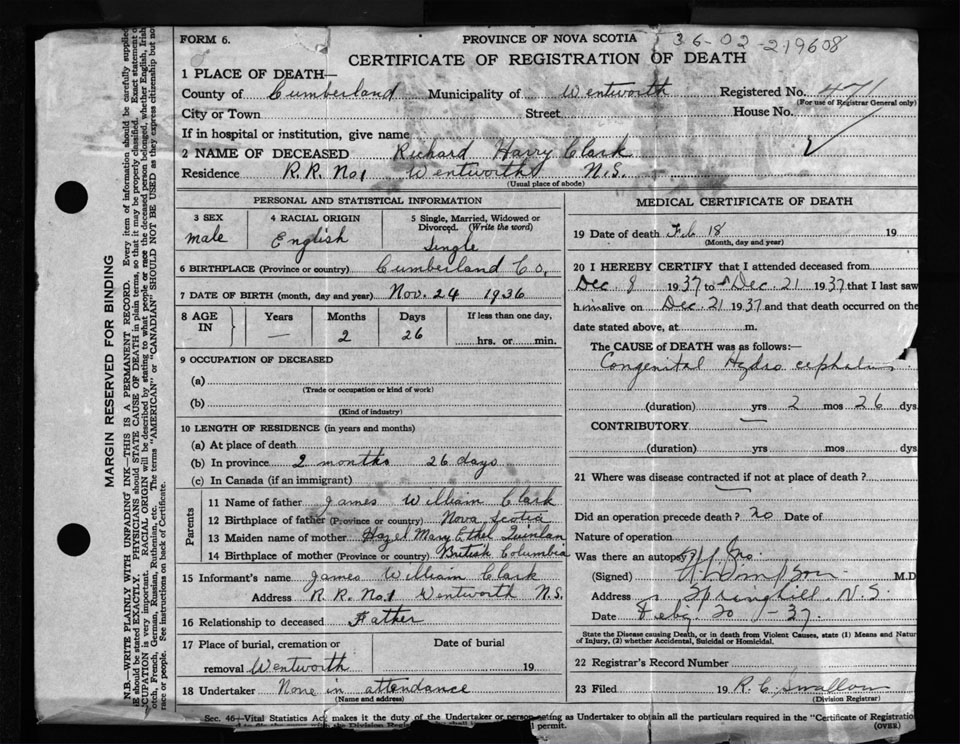 FORM 6.
PROVINCE OF NOVA SCOTIA
36-02-219608
CERTIFICATE OF REGISTRATION OF DEATH
1 PLACE OF DEATH—
County of Cumberland Municipality of Wentworth Registered No. 471
(For use of Registrar General only)
City or Town Street House No.
If in hospital or institution, give name
2 NAME OF DECEASED Richard Harry Clark
Residence R.R. No. 1 Wentworth N.S.
(Usual place of abode)
PERSONAL AND STATISTICAL INFORMATION
3 SEX 4 RACIAL ORIGIN 5 Single, Married, Widowed or
Divorced. (Write the word)
male English Single
6 BIRTHPLACE (Province or country) Cumberland Co,
7 DATE OF BIRTH (month, day and year) Nov. 24 1936
8 AGE IN Years Months Days If less than one day,
— 2 26 hrs. or min.
9 OCCUPATION OF DECEASED
(a)
(Trade or occupation or kind of work)
(b)
(Kind of industry)
10 LENGTH OF RESIDENCE (in years and months)
(a) At place of death
(b) In province 2 months 26 days
(c) In Canada (if an immigrant)
Parents
11 Name of father James William Clark
12 Birthplace of father (Province or country) Nova Scotia
13 Maiden name of mother Hazel Mary Ethel Quinlan
14 Birthplace of mother (Province or country) British Columbia
15 Informant's name James William Clark
Address R.R. No. 1 Wentworth N.S.
16 Relationship to deceased Father
17 Place of burial, cremation or Date of burial
removal Wentworth 19
18 Undertaker None in attendance
(Name and address)
MEDICAL CERTIFICATE OF DEATH
19 Date of death Feb 18 19
(Month, day and year)
20 I HEREBY CERTIFY that I attended deceased from
Dec. 8 1937 to Dec. 21 1937 that I last saw
him alive on Dec. 21 1937 and that death occurred on the
date stated above, at m.
The CAUSE of DEATH was as follows:—
Congenital Hydro cephalus
(duration) yrs 2 mos 26 dys
CONTRIBUTORY
(duration) yrs mos dys
21 Where was disease contracted if not at place of death?
—
Did an operation precede death? no Date of
Nature of operation
Was there an autopsy? no.
(Signed) M.D
Address Springhill, N.S.
Date Feb. 20 - 37.
State the Disease causing Death, or in death from Violent Causes, state (1) Means and Natur
of Injury, (2) whether Accidental, Suicidal or Homicidal.
22 Registrar's Record Number
23 Filed 19 R. C. Swallow
(Division Registrar)
Sec. 46—Vital Statistics Act makes it the duty of the Undertaker or person acting as Undertaker to obtain all the particulars required in the "Certificate of Registration
permit. (OVER)
MARGIN RESERVED FOR BINDING
N.B.—WRITE PLAINLY WITH UNFADING INK—THIS IS A PERMANENT RECORD. Every item of information should be carefully supplied
should be stated EXACTLY. PHYSICIANS should STATE CAUSE OF DEATH in plain terms, so that it may be properly classified. Exact statement of
CUPATION is very important. RACIAL ORIGIN will be described by stating to what people or race the deceased person belonged, whether English, Irish
otch, French, German, Russian, Ruthenian, etc. The terms "AMERICAN" or "CANADIAN" SHOULD NOT BE USED as they express citizenship but no
race or people. See instructions on back of Certificate.